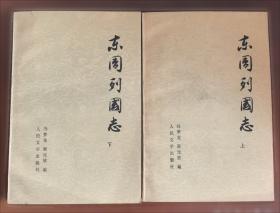 东周列國志
下
冯梦龙 蔡元放 编
人民文学出版社
东周列國志
上
冯梦龙 蔡元放 编
人民文学出版社